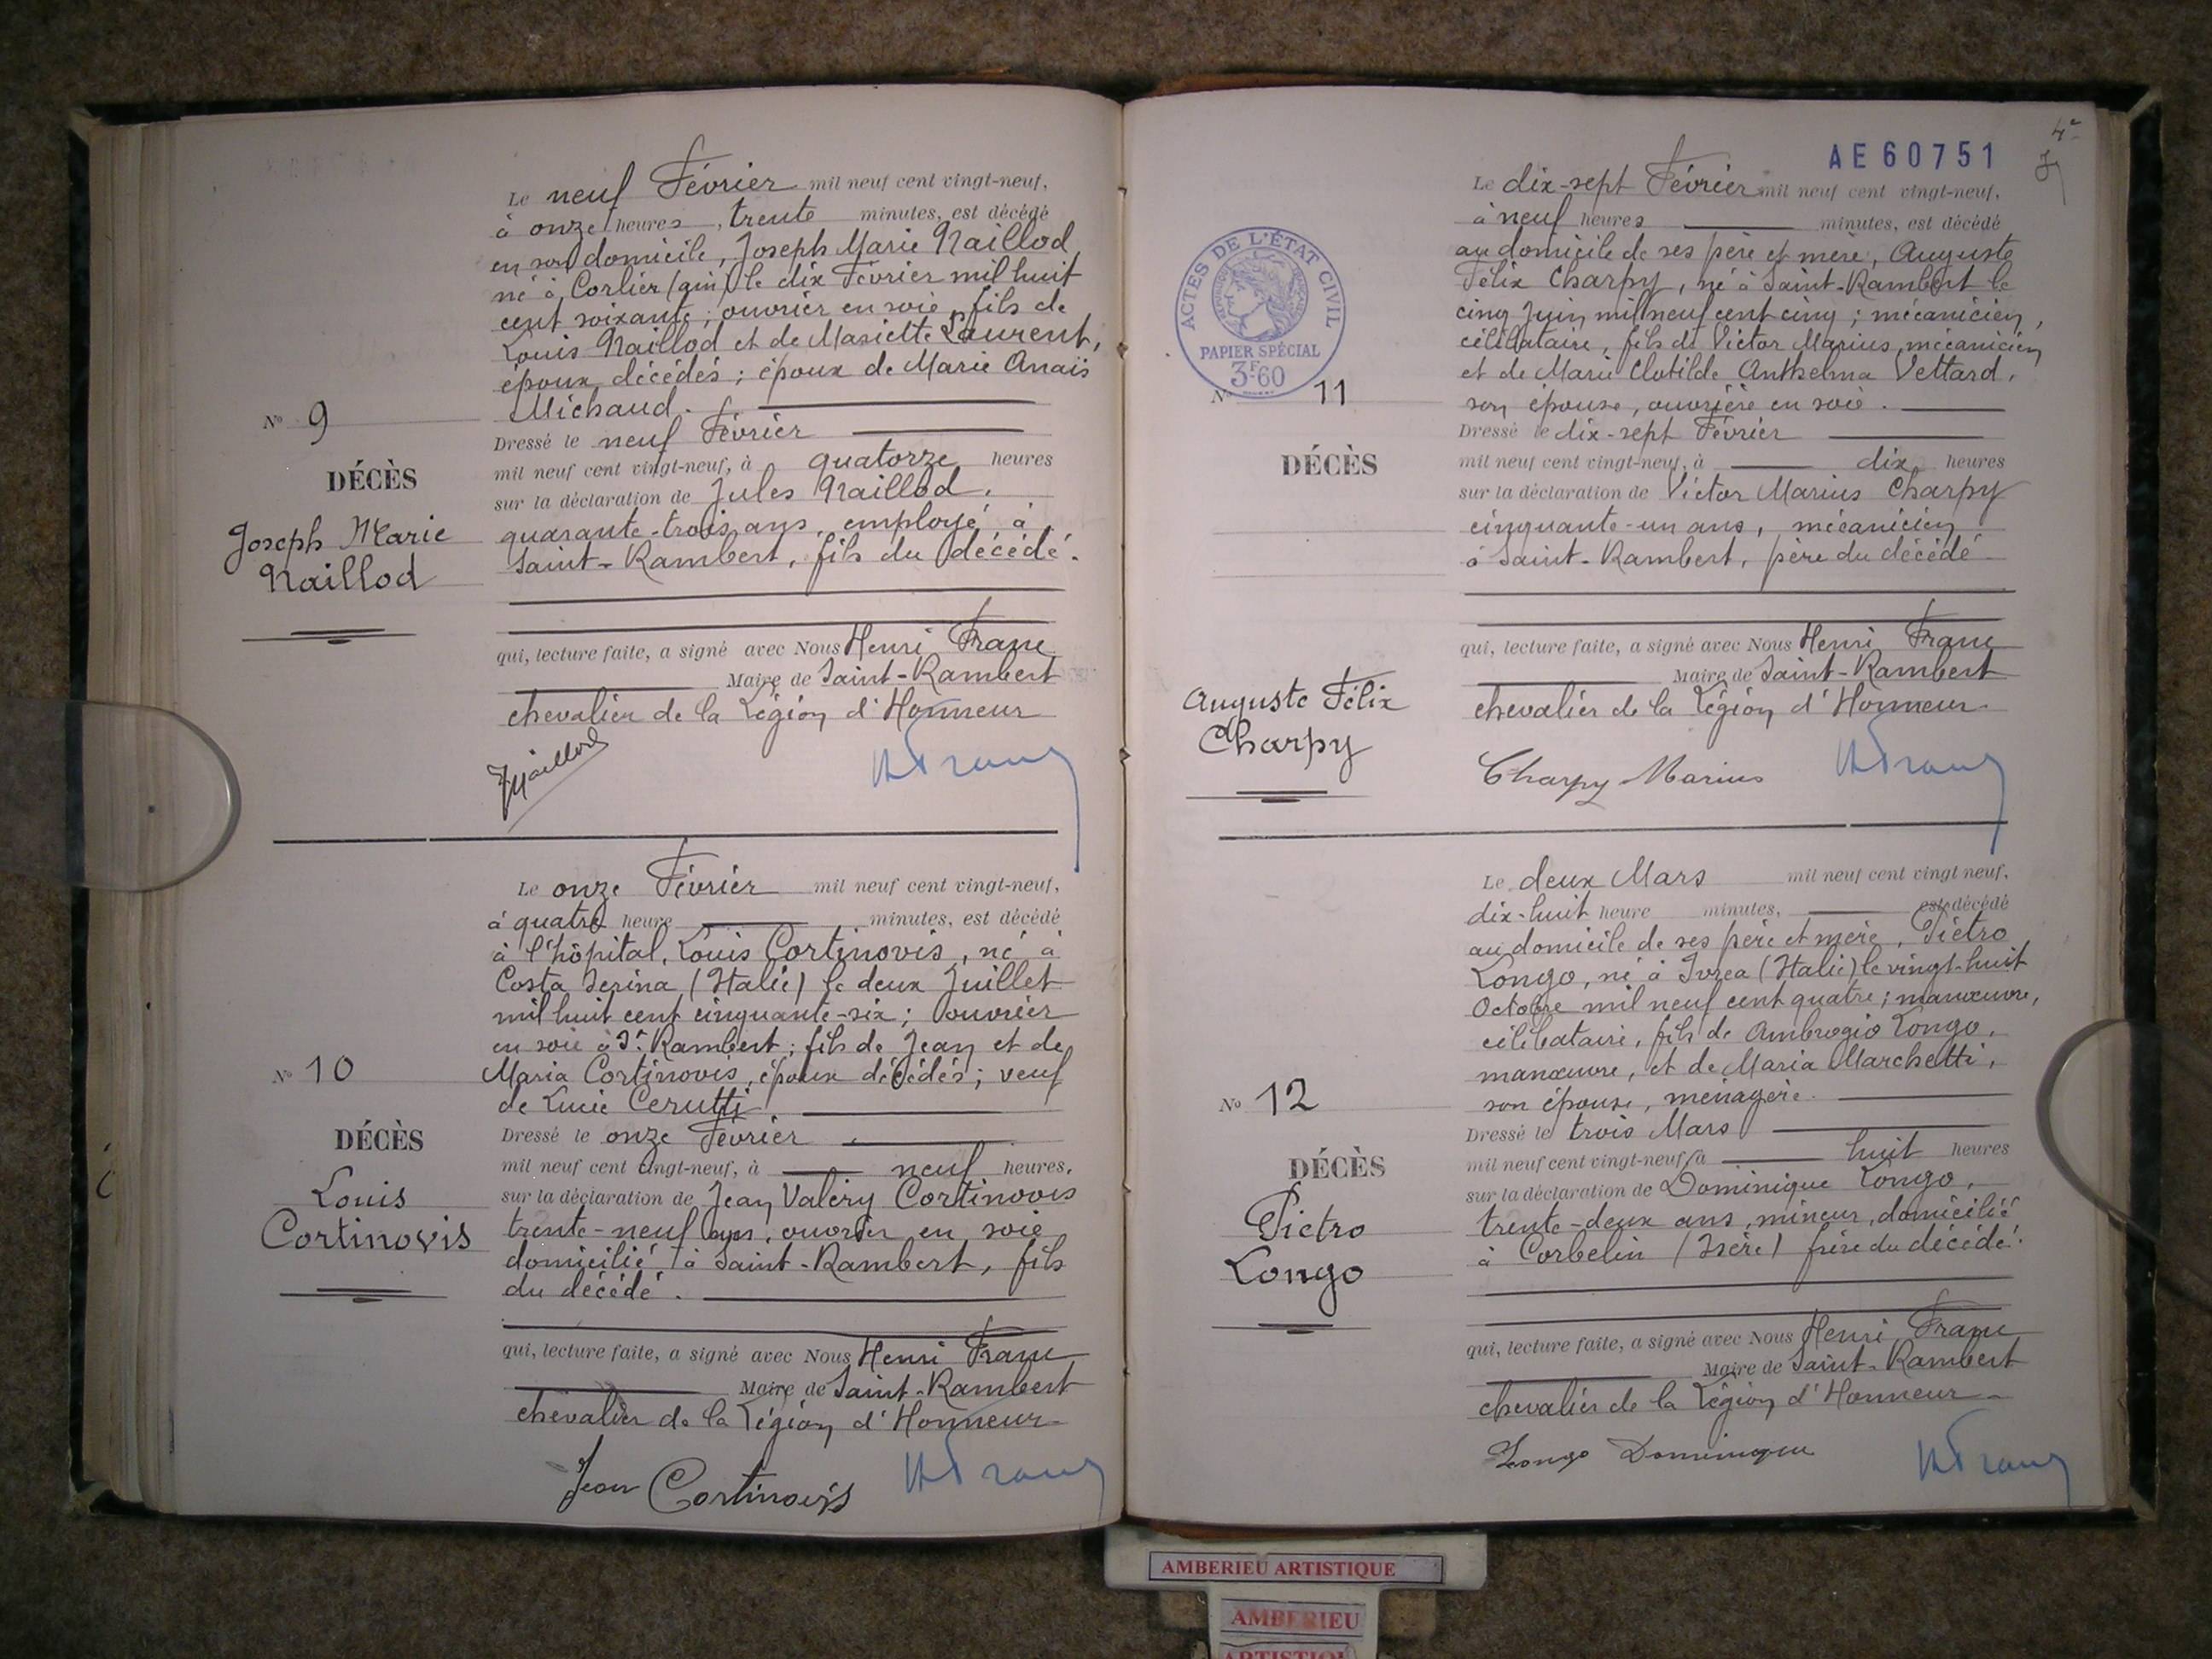 Le neuf Février mil neuf cent vingt-neuf,
à onze heures, trente minutes, est décédé
en son domicile, Joseph Marie Naillod
né à Corlier (Ain) le dix Février mil huit
cent soixante; ouvrier en soie, fils de
Louis Naillod et de Mariette Laurent,
époux décédés; époux de Marie Anaïs
Michaud.
Nº 9
Dressé le neuf Février
DÉCÈS
mil neuf cent vingt-neuf, à quatorze heures
sur la déclaration de Jules Naillod,
Joseph Marie
Naillod
quarante-trois ans, employé à
Saint-Rambert, fils du décédé.
qui, lecture faite, a signé avec Nous Henri Franc
Maire de Saint-Rambert
chevalier de la Légion d'Honneur
JNaillod
HFranc
Le onze Février mil neuf cent vingt-neuf,
à quatre heure minutes, est décédé
à l'hôpital, Louis Cortinovis, né à
Costa Serina (Italie) le deux Juillet
mil huit cent cinquante-six; ouvrier
en soie à St Rambert; fils de Jean et de
Nº 10
Maria Cortinovis, époux décédés; veuf
de Lucie Cerutti.
DÉCÈS
Dressé le onze Février
mil neuf cent vingt-neuf, à neuf heures,
Louis
Cortinovis
sur la déclaration de Jean Valéry Cortinovis
trente-neuf ans, ouvrier en soie
domicilié à Saint-Rambert, fils
du décédé.
qui, lecture faite, a signé avec Nous Henri Franc
Maire de Saint-Rambert
chevalier de la Légion d'Honneur
Jean Cortinovis
HFranc
4e
AE60751
Le dix-sept Février mil neuf cent vingt-neuf,
à neuf heures minutes, est décédé
au domicile de ses père et mère, Auguste
Félix Charpy, né à Saint-Rambert le
cinq Juin mil neuf cent cinq; mécanicien,
célibataire, fils de Victor Marius, mécanicien
et de Marie Clotilde Anthelma Vettard,
son épouse, ouvrière en soie.
ACTES DE L'ÉTAT CIVIL
PAPIER SPÉCIAL
3F60
Nº 11
Dressé le dix-sept Février
DÉCÈS
mil neuf cent vingt-neuf, à dix heures
sur la déclaration de Victor Marius Charpy
cinquante-un ans, mécanicien
à Saint-Rambert, père du décédé
qui, lecture faite, a signé avec Nous Henri Franc
Maire de Saint-Rambert
Auguste Félix
Charpy
chevalier de la Légion d'Honneur
Charpy Marius
HFranc
Le deux Mars mil neuf cent vingt neuf,
dix-huit heure minutes, est décédé
au domicile de ses père et mère, Piétro
Longo, né à Ivrea (Italie) le vingt-huit
Octobre mil neuf cent quatre; manœuvre,
célibataire, fils de Ambrogio Longo,
manœuvre, et de Maria Marchetti,
Nº 12
son épouse, ménagère.
Dressé le trois Mars
DÉCÈS
mil neuf cent vingt-neuf, à huit heures
Piétro
Longo
sur la déclaration de Dominique Longo,
trente-deux ans, mineur, domicilié
à Corbelin (Isère) frère du décédé.
qui, lecture faite, a signé avec Nous Henri Franc
Maire de Saint-Rambert
chevalier de la Légion d'Honneur
Longo Dominique
HFranc
AMBERIEU ARTISTIQUE
AMBERIEU
ARTISTIQUE